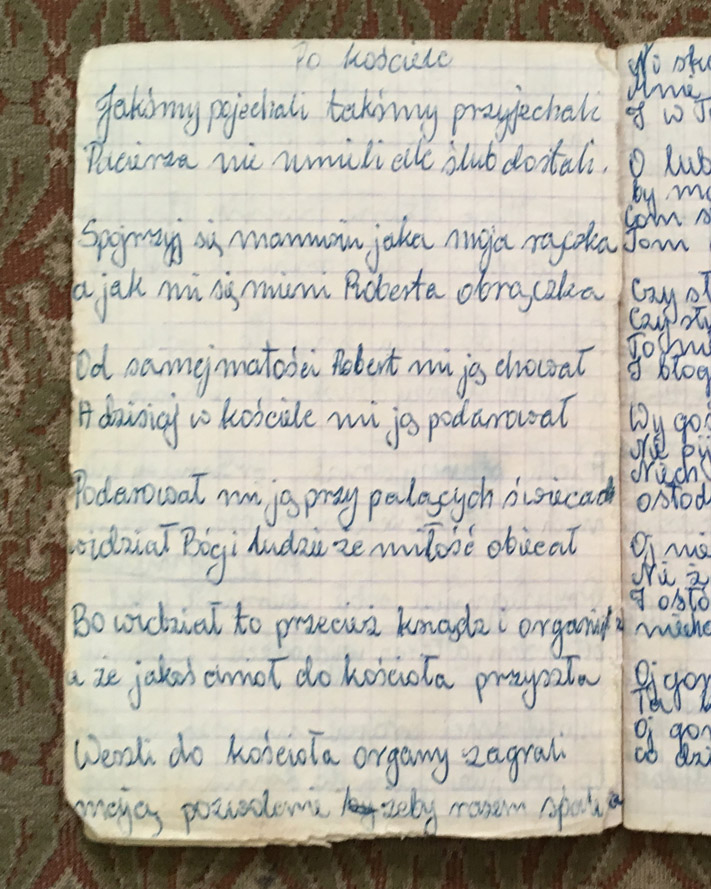 Po kościele
Jakśmy pojechali takśmy przyjechali
Pacierza nie umieli ale ślub dostali.
Spojrzyj się mamusiu jaka moja rączka
a jak mi się mieni Roberta obrączka
Od samej małości Robert mi ją chował
A dzisiaj w kościele mi ją podarował
Podarował mi ją przy palących świecach
widział Bóg i ludzie że miłość obiecał
Bo widział to przecież ksiądz i organista
a że jakoś do kościoła przyszła
Weszli do kościoła organy zagrali
mają pozwolenie żeby razem spali
Ni
I w
O lub
by
Com
Tom
Czy
Czy
To
I błog
Wy goś
Nie
Niech
osłod
Oj nie
Nie ż
I osło
niech
Oj gor
Ta
Oj gor
co dzi